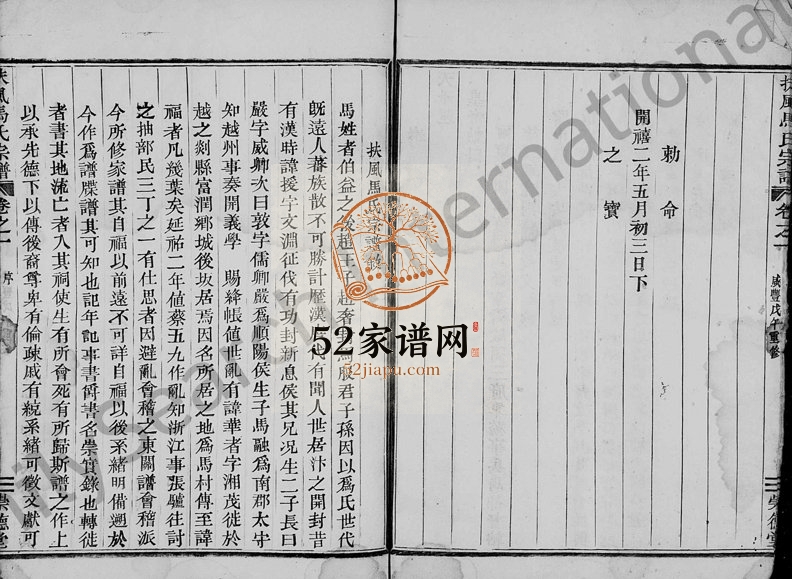 勅命
開禧二年五月初三日下
之寶
扶風馬氏宗譜
卷之一
咸豐戊午重修
崇德堂
扶風馬氏宗譜敘
馬姓者伯益之後趙王子趙奢封馬服君子孫因以爲氏世代
旣遠人蕃族散不可勝計歷漢唐代有聞人世居汴之開封昔
有漢時諱援字文淵征伐有功封新息侯其兄况生二子長曰
嚴字威卿次曰敦字儒卿嚴爲順陽侯生子馬融爲南郡太守
知越州事奏開義學 賜絳帳值世亂有諱華者字湘茂徙於
越之剡縣富潤鄉城後坂居焉因名所居之地爲馬村傳至諱
福者凡幾葉矣延祐二年值蔡五九作亂知浙江事張驢往討
之抽部民三丁之一有仕思者因避亂會稽之東關譜會稽派
今所修家譜其自福以前遠不可詳自福以後系緒明備遡於
今作爲譜牒譜其可知也記年記事書爵書名崇實錄也轉徙
者書其地流亡者入其祠使生有所會死有所歸斯譜之作上
以承先德下以傳後裔尊卑有倫疎戚有統系緒可徵文獻可
扶風馬氏宗譜
卷之一
序
一
崇德堂
52家谱网
52jiapu.com